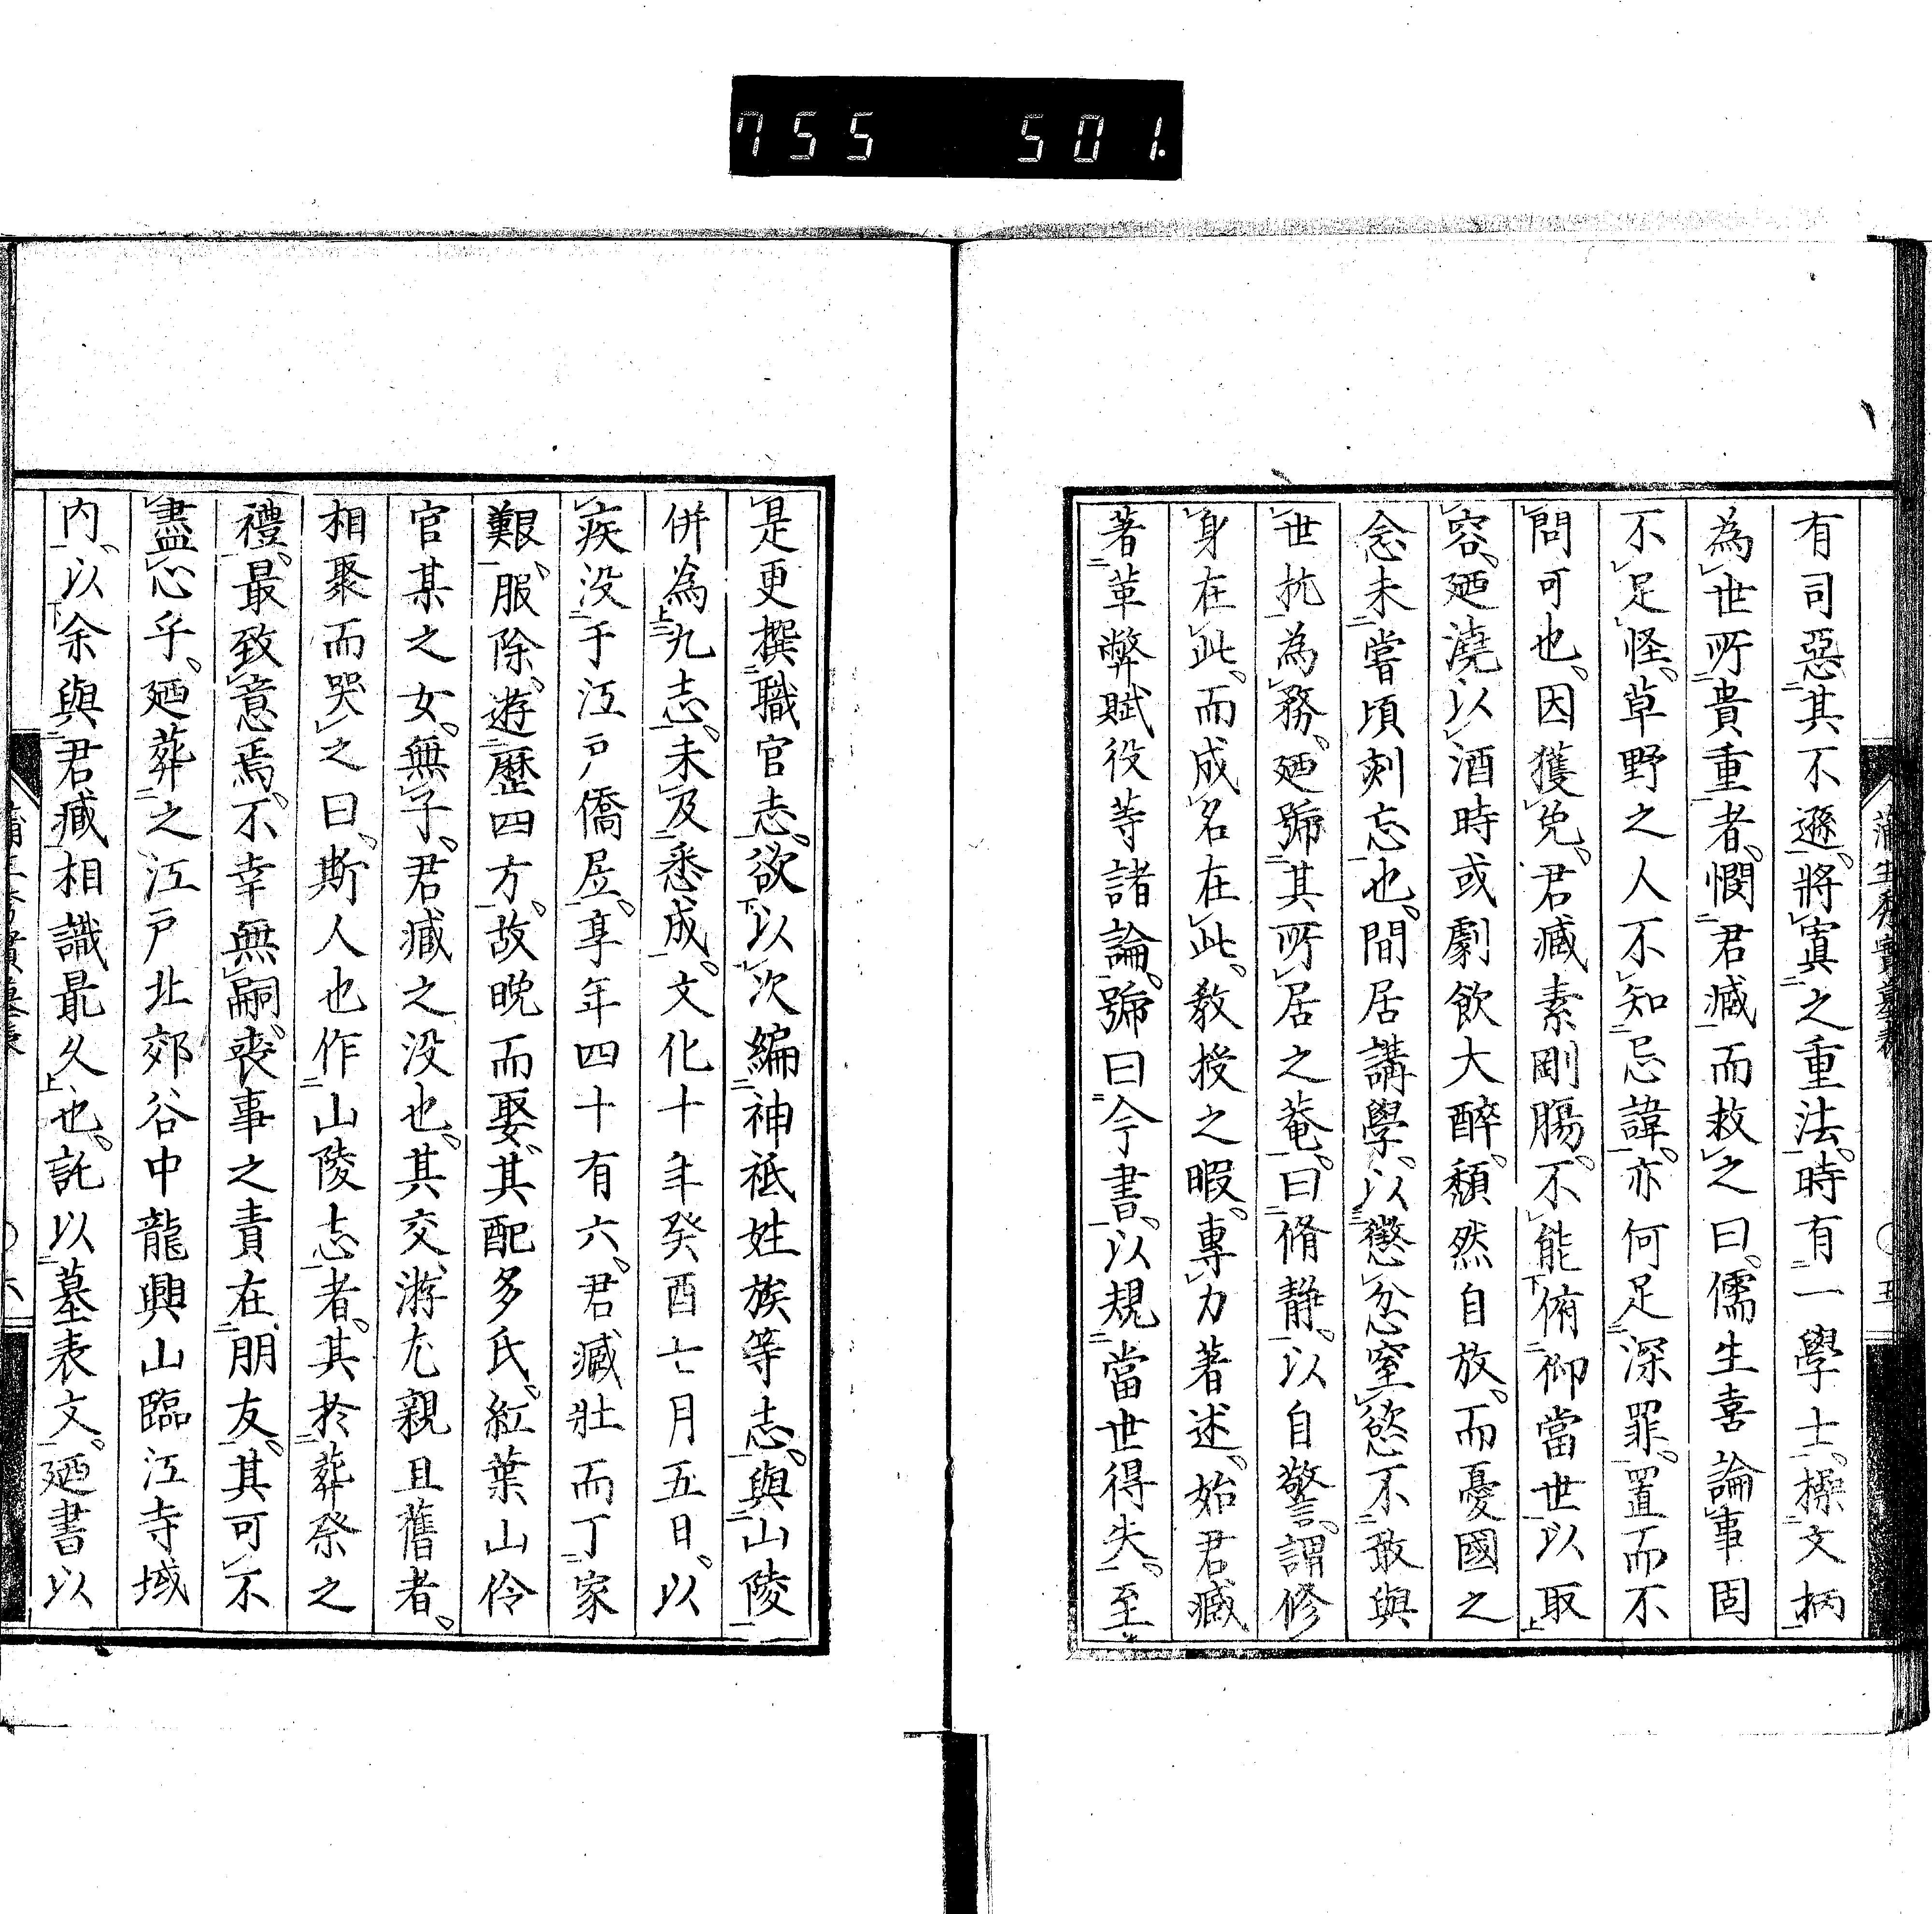 755 501.
蒲生秀實墓表 五
有司惡其不遜將寘之重法時有一學士操文柄
為世所貴重者憫君臧而救之曰儒生喜論事固
不足怪草野之人不知忌諱亦何足深罪置而不
問可也因獲免君臧素剛腸不能俯仰當世以取
容廼澆以酒時或劇飲大醉頹然自放而憂國之
念未嘗頃刻忘也間居講學以懲忿窒慾不敢與
世抗為務廼號其所居之菴曰脩靜以自警謂修
身在此而成名在此教授之暇專力著述始君臧
著革弊賦役等諸論號曰今書以規當世得失至
是更撰職官志欲以次編神祇姓族等志與山陵
併為九志未及悉成文化十年癸酉七月五日以
疾没于江戸僑居享年四十有六君臧壯而丁家
艱服除遊歷四方故晚而娶其配多氏紅葉山伶
官某之女無子君臧之没也其交游尤親且舊者
相聚而哭之曰斯人也作山陵志者其於葬祭之
禮最致意焉不幸無嗣喪事之責在朋友其可不
盡心乎廼葬之江戸北郊谷中龍興山臨江寺域
内以余與君臧相識最久也託以墓表文廼書以
六